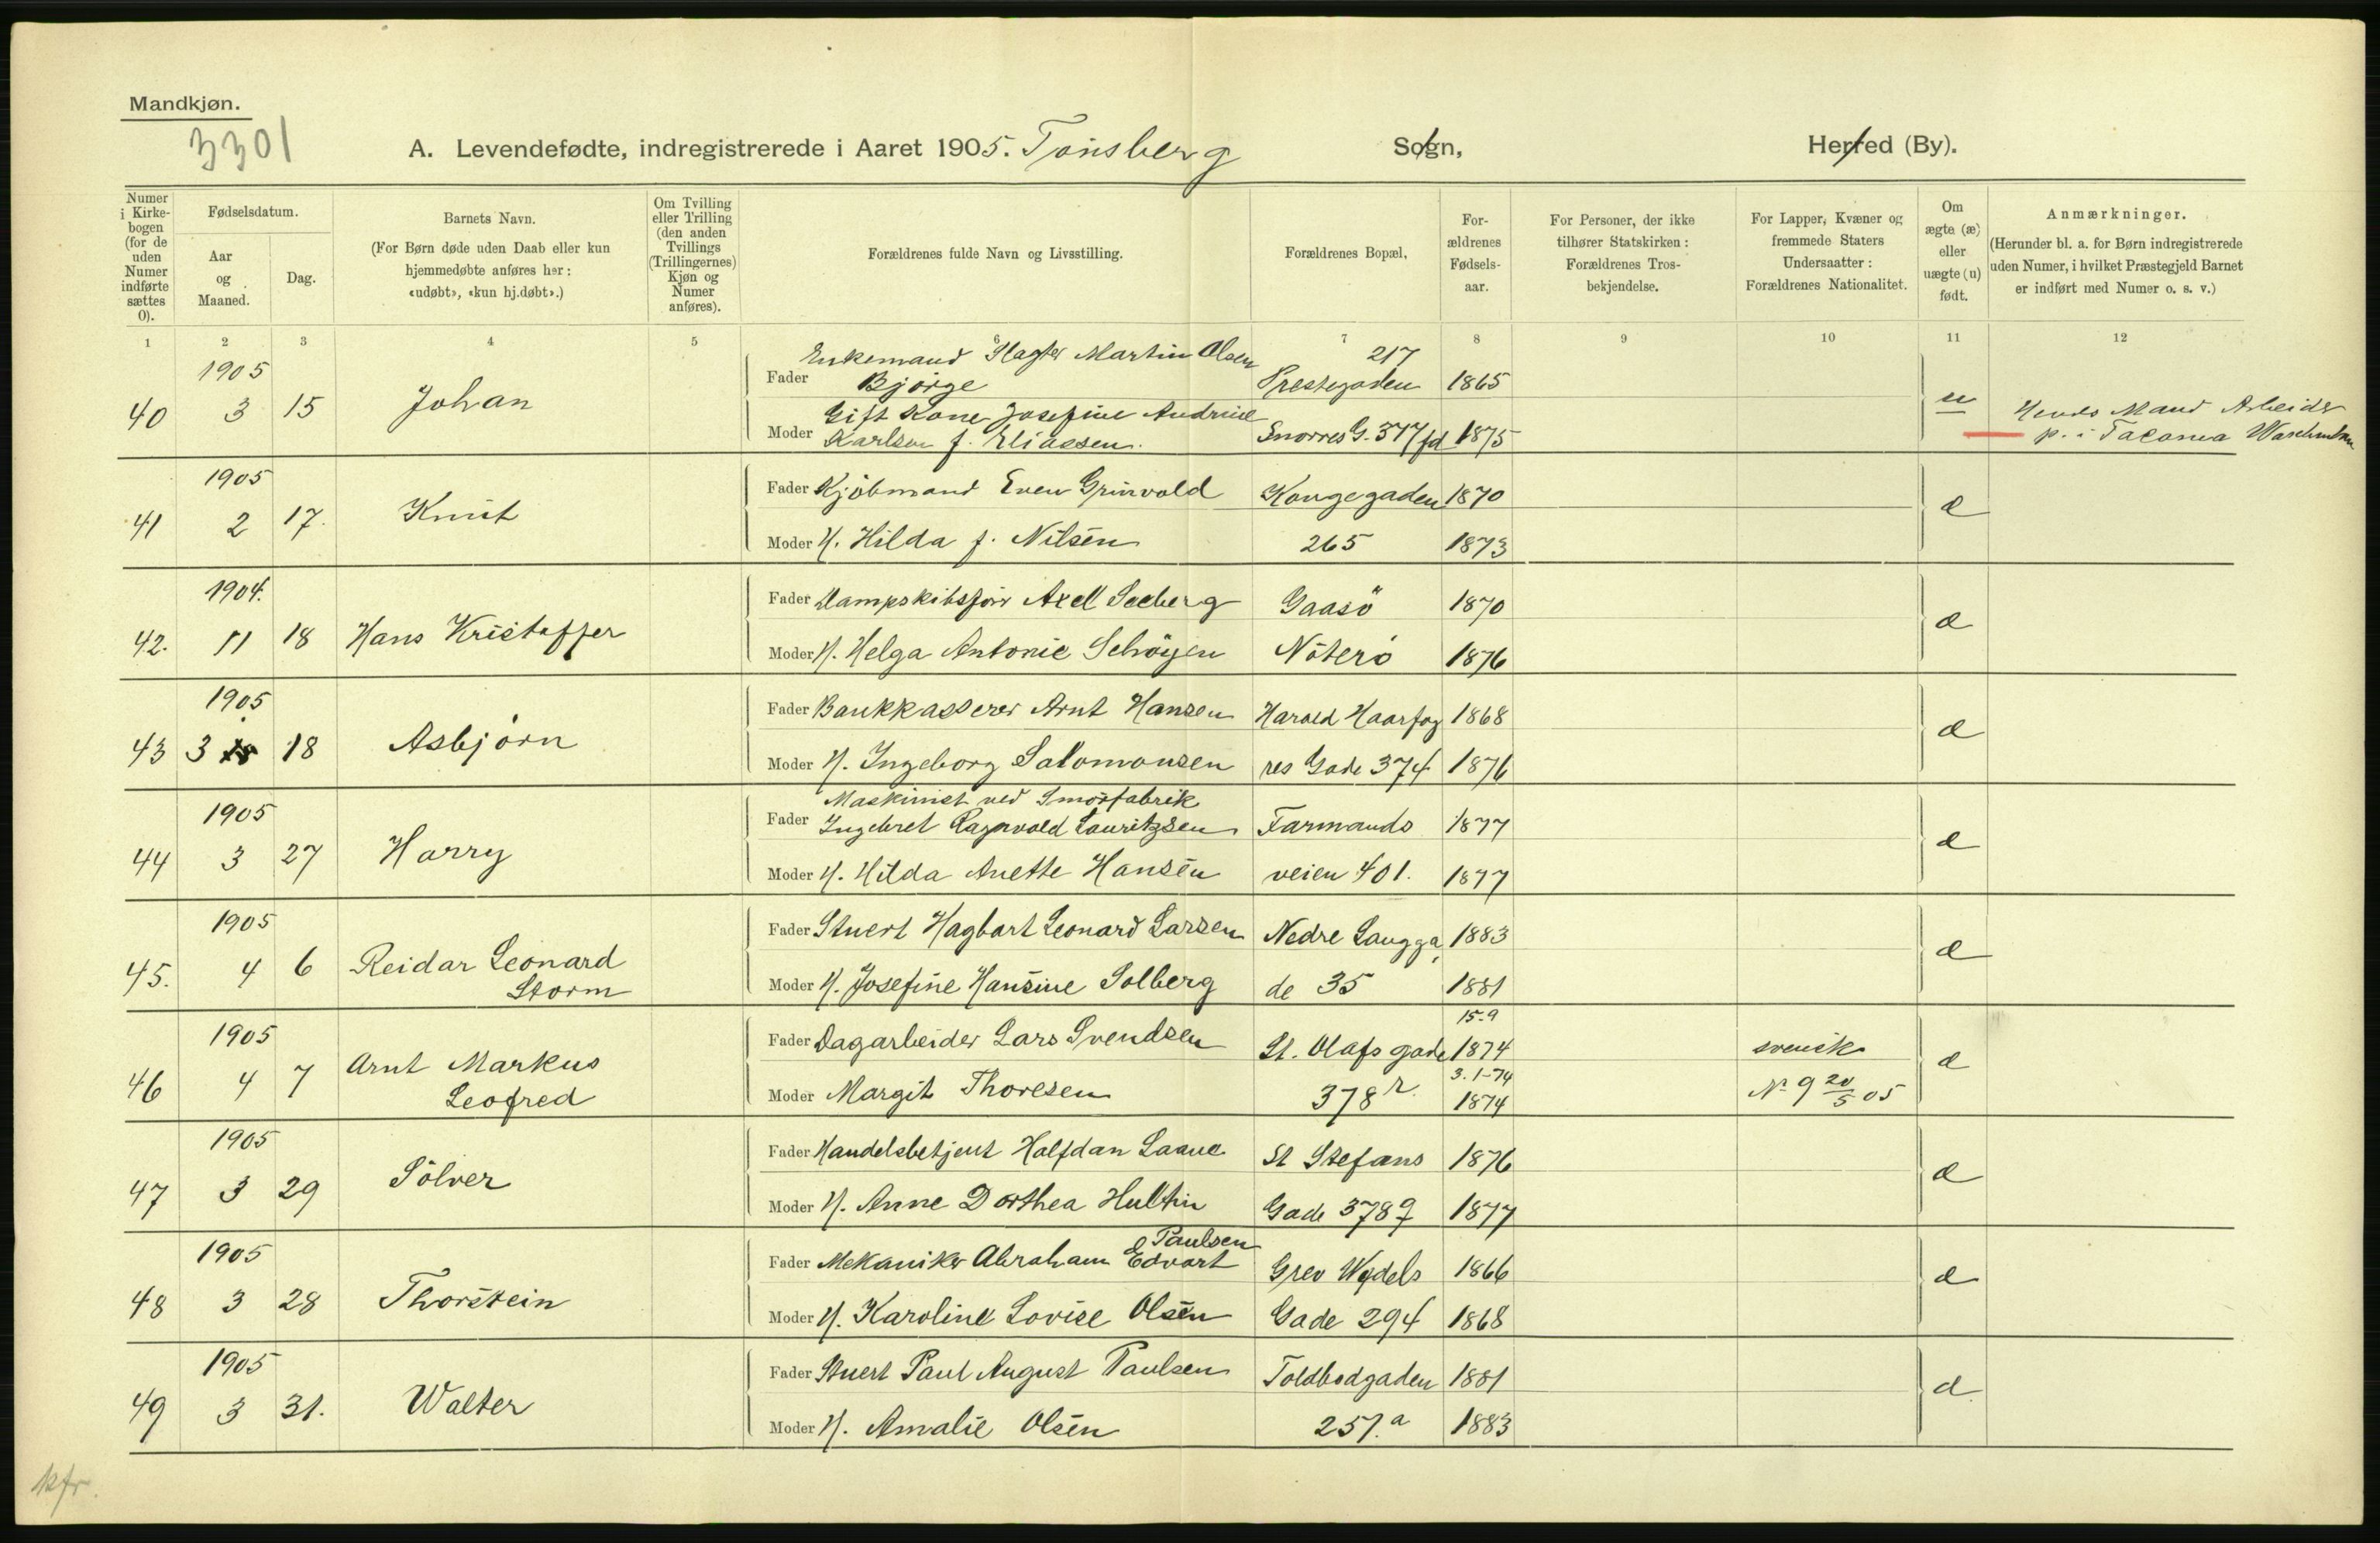 Mandkjøn.
3301
A. Levendefødte, indregistrerede i Aaret 1905. Tønsberg Sogn, Herred (By).
Numer i Kirkebogen (for de uden Numer indførte sættes 0).
Fødselsdatum.
Aar og Maaned.
Dag.
Barnets Navn.
(For Børn døde uden Daab eller kun hjemmedøbte anføres her: «udøbt», «kun hj.døbt».)
Om Tvilling eller Trilling (den anden Tvillings (Trillingernes) Kjøn og Numer anføres).
Forældrenes fulde Navn og Livsstilling.
Forældrenes Bopæl,
Forældrenes Fødselsaar.
For Personer, der ikke tilhører Statskirken: Forældrenes Trosbekjendelse.
For Lapper, Kvæner og fremmede Staters Undersaatter: Forældrenes Nationalitet.
Om ægte (æ) eller uægte (u) født.
Anmærkninger.
(Herunder bl. a. for Børn indregistrerede uden Numer, i hvilket Præstegjeld Barnet er indført med Numer o. s. v.)
1 2 3 4 5 6 7 8 9 10 11 12
1905
40 3 15 Johan
Fader Enkemand Slagter Martin Olsen Bjørge 217 Prestegaden 1865
Moder Gift Kone Josefine Andrine Karlsen f. Eliassen. Snorres G. 377 fd 1875
u
Hendes Mand Arbeider
p. i Tacoma
1905
41 2 17. Knut
Fader Kjøbmand Even Grinvold Kongegaden 1870
Moder H. Hilda f. Nilsen 265 1873
æ
1904.
42. 11 18 Hans Kristoffer
Fader Dampskibsfører Axel Seeberg Gaasö 1870
Moder H. Helga Antonie Schöyen Nöterö 1876
æ
1905
43 3 18 Asbjørn
Fader Bankkasserer Arnt Hansen Harald Haarfag 1868
Moder H. Ingeborg Salomonsen res Gade 374 1876
æ
1905
44 3 27 Harry
Fader Maskinist ved Smörfabrik Ingebret Ragnvald Lauritzsen Farmands 1877
Moder H. Hilda Anette Hansen veien 401. 1877
æ
1905
45. 4 6 Reidar Leonard Storm
Fader Stuert Hagbart Leonard Larsen Nedre Langga 1883
Moder H. Josefine Hansine Solberg de 35 1881
æ
1905
46 4 7 Arnt Markus Leofred
Fader Dagarbeider Lars Svendsen St. Olafs gade 15-9 1874 svensk
Moder Margit Thoresen 378 r. 3.1-74 1874 No 9 20/5 05
æ
1905
47 3 29 Sölver
Fader Handelsbetjent Halfdan Laane St Stefans 1876
Moder H. Anne Dorthea Hultin Gade 378 9 1877
æ
1905
48 3 28 Thorstein
Fader Mekaniker Abraham Edvart Paulsen Grev Wedels 1866
Moder H. Karoline Lovise Olsen Gade 294 1868
æ
1905
49 3 31. Walter
Fader Stuert Paul August Paulsen Toldbodgaden 1881
Moder H. Amalie Olsen 257.a 1883
æ
kfr.